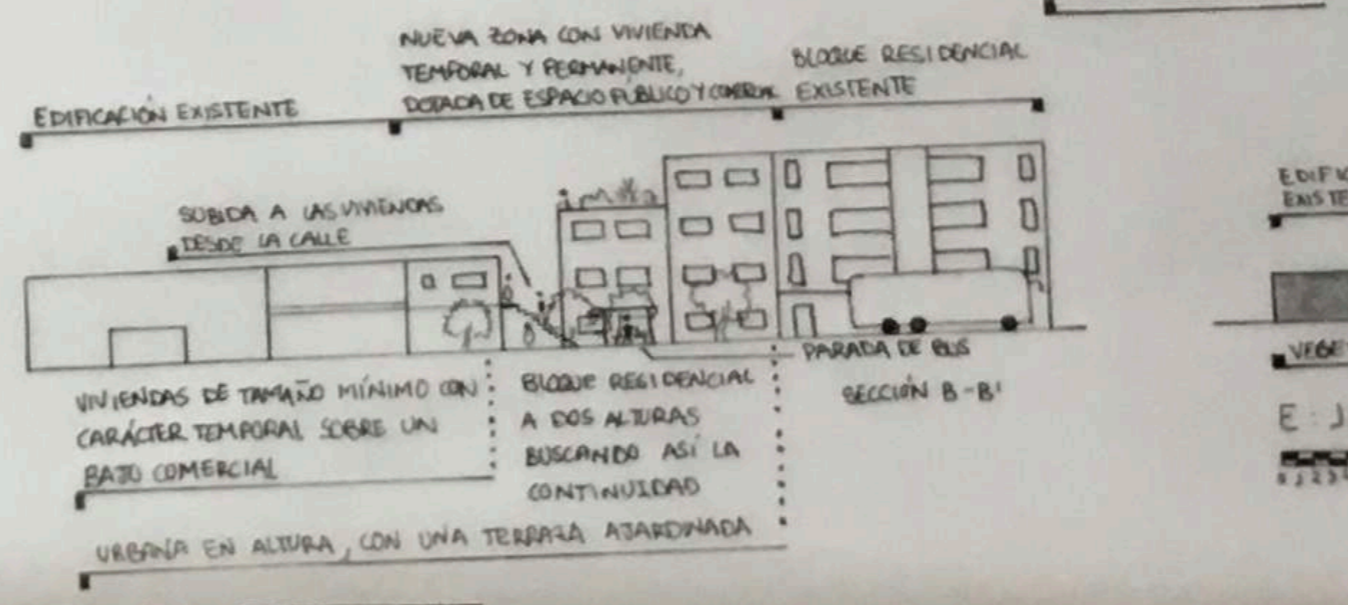 EDIFICACIÓN EXISTENTE
NUEVA ZONA CON VIVIENDA
TEMPORAL Y PERMANENTE,
DOTADA DE ESPACIO PÚBLICO Y
BLOQUE RESIDENCIAL
EXISTENTE
SUBIDA A LAS VIVIENDAS
DESDE LA CALLE
PARADA DE BUS
SECCIÓN B-B'
VIVIENDAS DE TAMAÑO MÍNIMO CON
CARÁCTER TEMPORAL SOBRE UN
BAJO COMERCIAL
BLOQUE RESIDENCIAL
A DOS ALTURAS
BUSCANDO ASÍ LA
CONTINUIDAD
URBANA EN ALTURA, CON UNA TERRAZA AJARDINADA
EDIFI
EXISTE
VEGE
E: